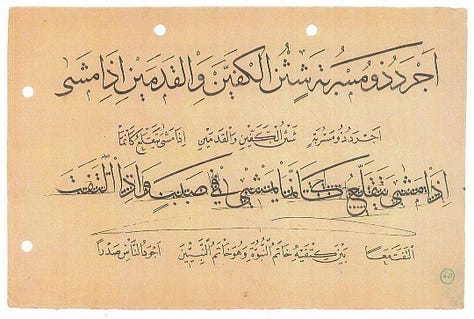 اجرد ذو مسربة شثن الكفين والقدمين اذا مشى
اجرد ذو مسربة شثن الكفين والقدمين اذا مشى تقلع كانما
اذا مشى يتقلع كانما يمشي في صبب واذا التفت
التفت معا بين كتفيه خاتم النبوة وهو خاتم النبيين اجود الناس صدرا